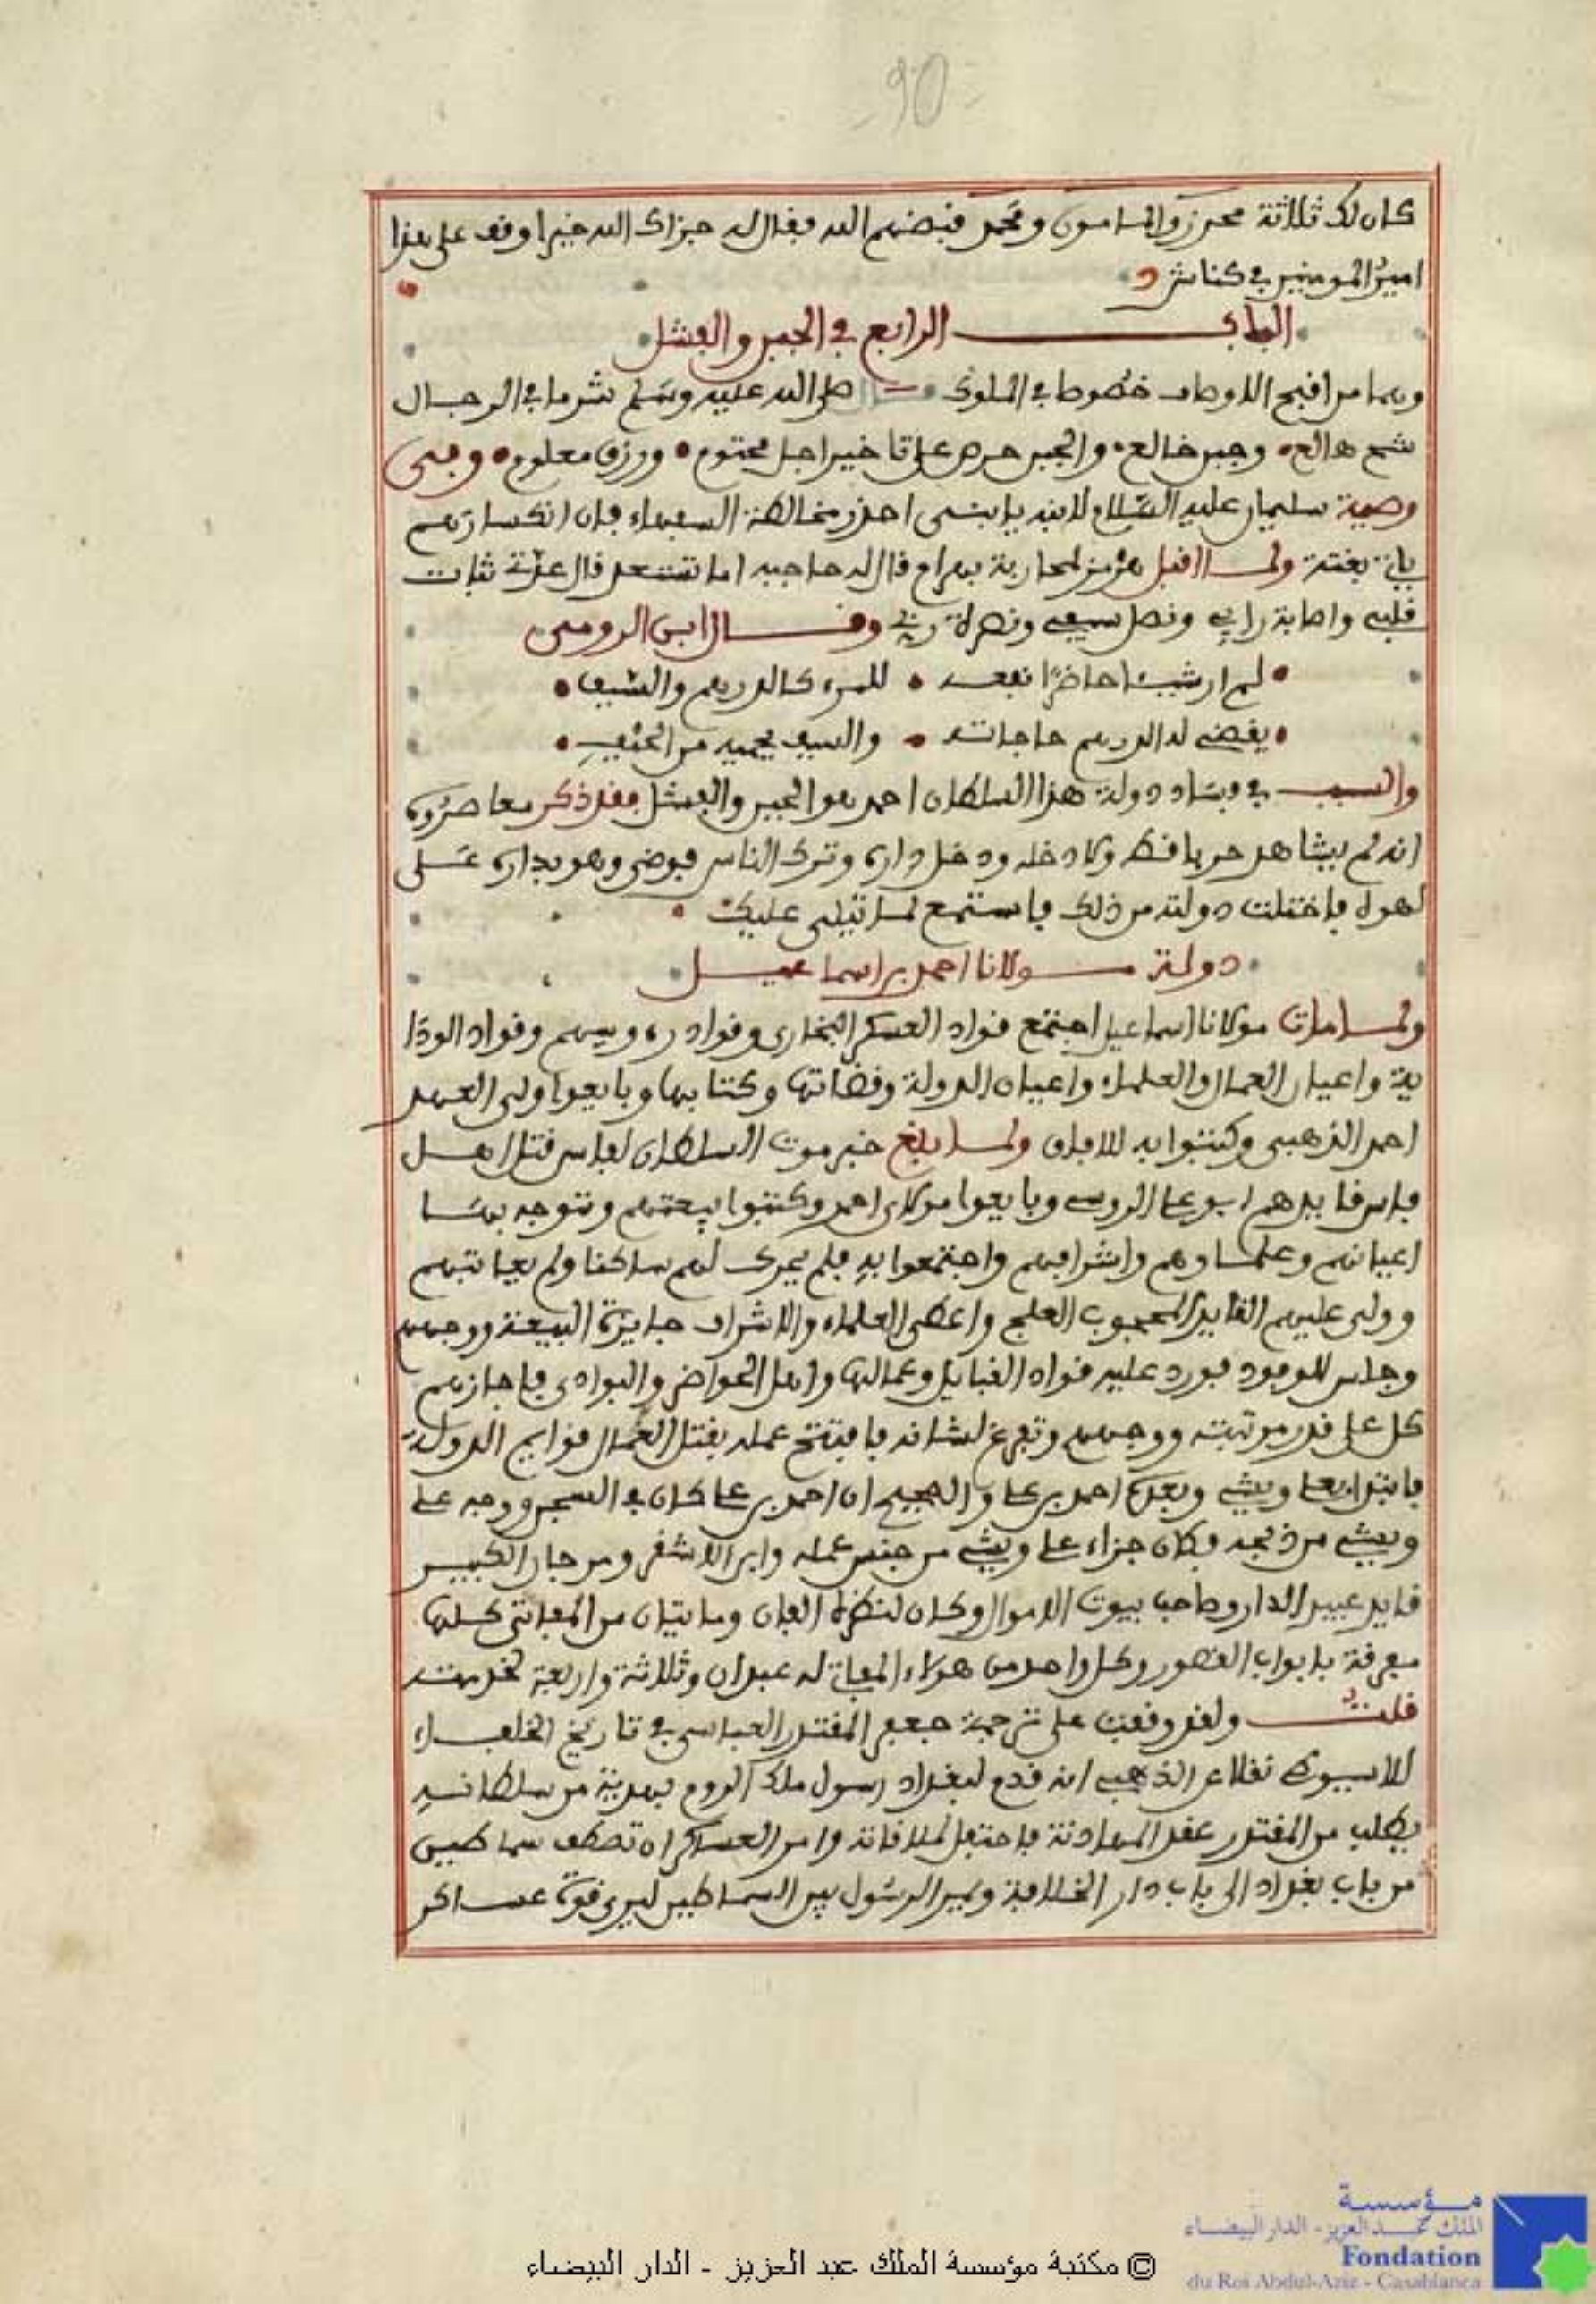 90
كان لك ثلاثة محرز والمامون ومحمد فبضهم الله فقال له جزاك الله خيرا وقف على هذا
امير المومنين في كناش
الباب الرابع في الجبن والفشل
وهما من افبح الاوصاف خصوصا في الملوك قال صلى الله عليه وسلم شر ما في الرجال
شح هالع وجبن خالع والجبن حرص على تاخير اجل محتوم ورزق معلوم وفي
وصية سليمان عليه السلام لابنه يا بني احذر مخالطة السفهاء فان انكسارهم
ياتي بغتة ولما اقبل هرمز لمحاربة بهرام قال له حاجبه اما تستعد قال عدتي ثبات
قلبي واصابة رايي ونصل سيفي ونصرة ربي وقال ابن الرومي
لم ار شيئا حاضرا نفعه للمرء كالدرهم والسيف
يقضي له الدرهم حاجاته والسيف يحميه من الحيف
والسبب في فساد دولة هذا السلطان احمد هو الجبن والفشل فقد ذكر معاصروه
انه لم يشاهد حربا قط ولا دخله ودخل داره وترك الناس فوضى وهو بداره على
لهوه فاختلت دولته من ذلك فاستمع لما يتلى عليك
دولة مولانا احمد بن اسماعيل
ولما مات مولانا اسماعيل اجتمع قواد العسكر البخاري وقواد رءوسهم وقواد الودا
ية واعيان العمال والعلماء واعيان الدولة وقضاتها وكتابها وبايعوا ولي العهد
احمد الذهبي وكتبوا به للافاق ولما بلغ خبر موت السلطان لفاس قتل اهل
فاس قايدهم ابو علي الروسي وبايعوا مولاي احمد وكتبوا بيعتهم وتوجه بها
اعيانهم وعلماوهم واشرافهم واجتمعوا به فلم يحرك لهم ساكنا ولم يعاتبهم
وولى عليهم القايد المحجوب العلج واعطى العلماء والاشراف جايزة البيعة ووجههم
وجلس للوفود فورد عليه قواد القبايل وعمالها واهل الحواضر والبوادي فاجازهم
كل على قدر مرتبته ووجههم وتفرغ لشانه فافتتح عمله بقتل العمال قوايم الدولة
فابتدا بعلي ويشي وبعده احمد بن علي والصحيح ان احمد بن علي كان في السجن ووجه على
ويشي من ذبحه فكان جزاء علي ويشي من جنس عمله وابن الاشقر ومرجان الكبير
قايد عبيد الدار وصاحب بيوت الاموال وكان لنظره الفان ومايتان من المفاتي كلها
مفرقة بابواب القصور وكل واحد من هولاء المفاتي له عبدان وثلاثة واربعة لخدمته
قلت ولقد وقفت على ترجمة جعفر المقتدر العباسي في تاريخ الخلفاء
للاسيوطي نقلا عن الذهبي انه قدم لبغداد رسول ملك الروم بهدية من سلطانه
يطلب من المقتدر عقد المهادنة فاحتفل لملاقاته وامر العساكر ان تصطف سماطين
من باب بغداد الى باب دار الخلافة ويمر الرسول بين السماطين ليرى قوة عساكر
مؤسسة
الملك عبد العزيز - الدار البيضاء
Fondation
du Roi Abdul-Aziz - Casablanca
© مكتبة مؤسسة الملك عبد العزيز - الدار البيضاء